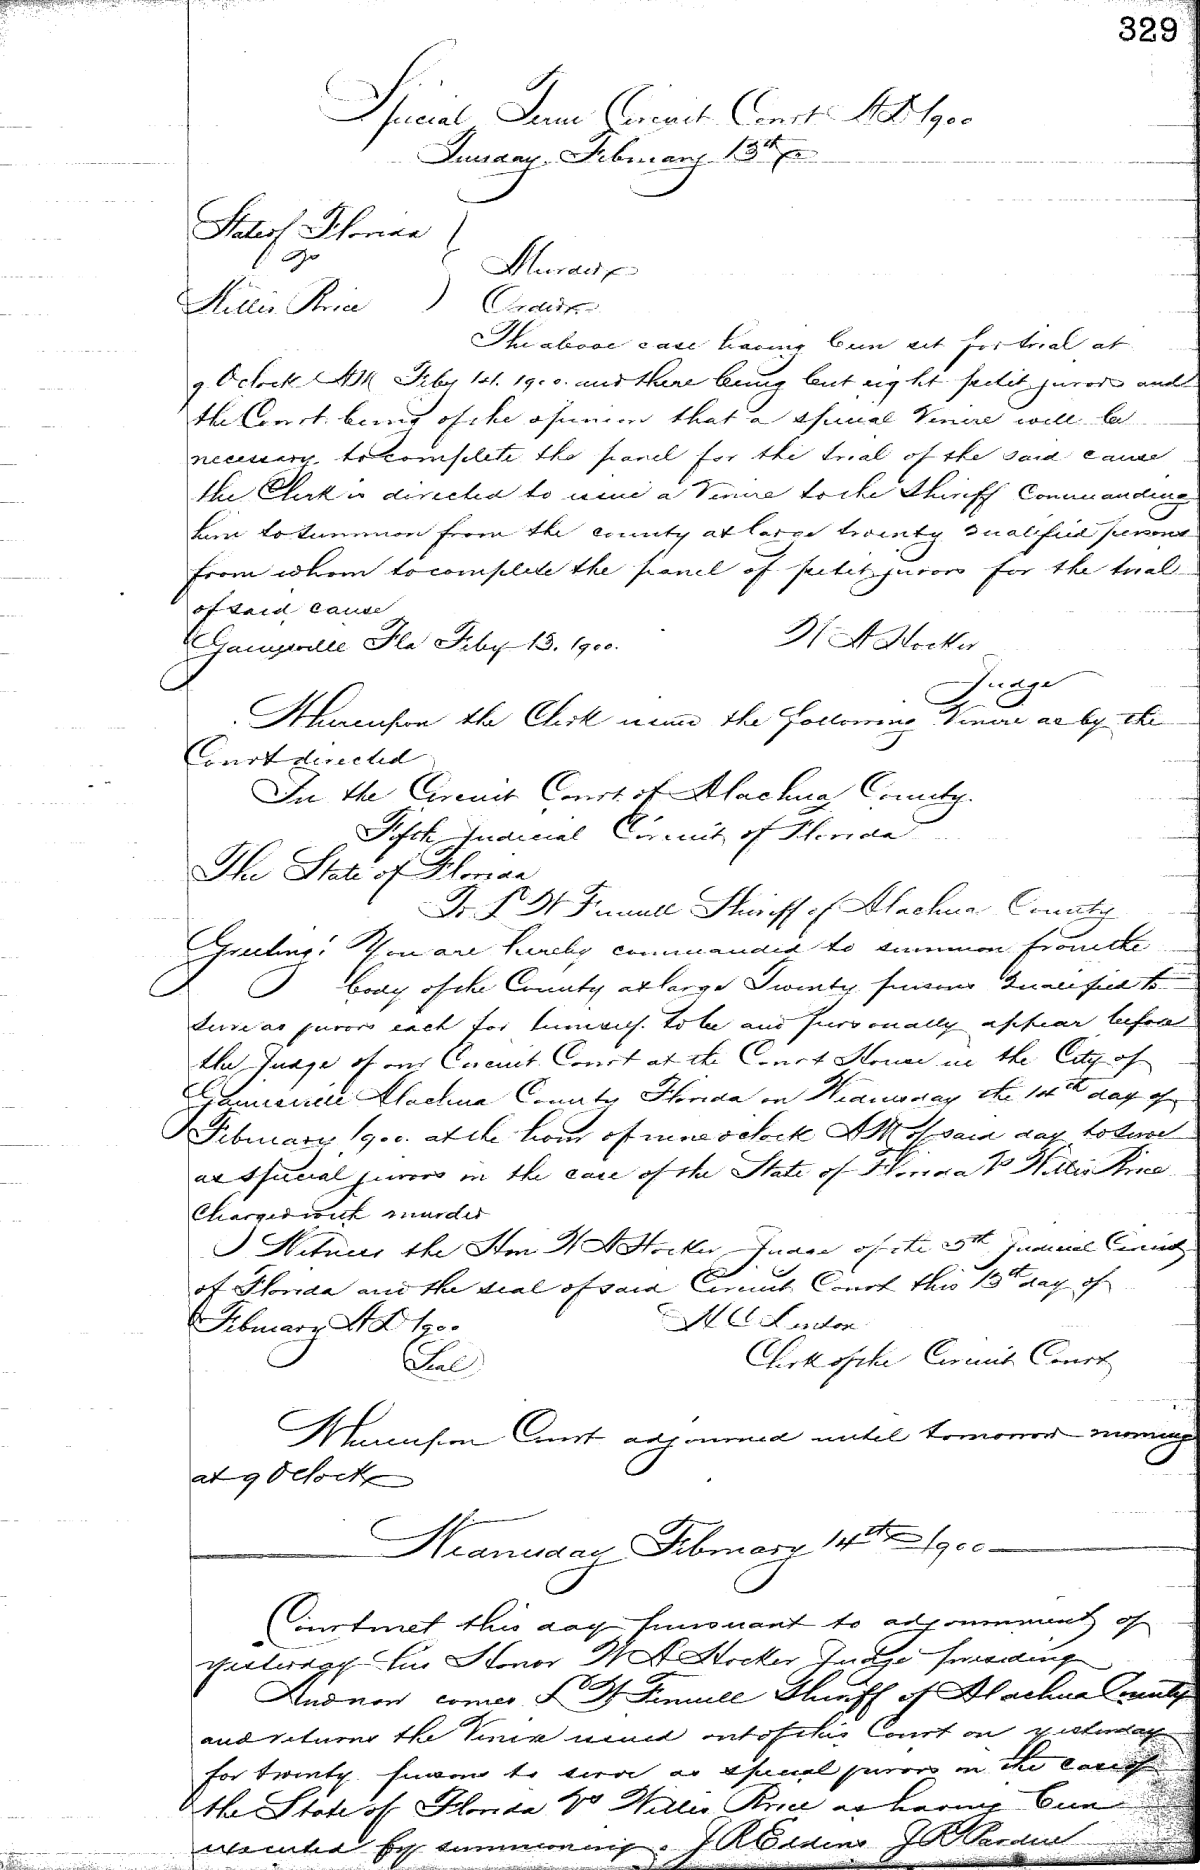 329
Special Term Circuit Court A D 1900
Tuesday February 13th
State of Florida
vs
Murder
Willis Price
Order
The above case having been set for trial at
9 Oclock AM Feby 14. 1900. and there being but eight petit jurors and
the Court being of the opinion that a special Venire will be
necessary to complete the panel for the trial of the said cause
the Clerk is directed to issue a Venire to the Sheriff Commanding
him to summon from the county at large twenty qualified persons
from whom to complete the panel of petit jurors for the trial
of said cause
Gainesville Fla Feby 13. 1900.
W A Hocker
Judge
Whereupon the Clerk issued the following Venire as by the
Court directed
In the Circuit Court of Alachua County.
Fifth Judicial Circuit of Florida
The State of Florida
To L W Fennell Sheriff of Alachua County
Greeting! You are hereby commanded to summon from the
body of the County at large Twenty persons qualified to
serve as jurors each for himself. to be and personally appear before
the Judge of our Circuit Court at the Court House in the City of
Gainesville Alachua County Florida on Wednesday the 14th day of
February 1900. at the hour of nine oclock AM of said day to serve
as special jurors in the case of the State of Florida Vs Willis Price
Charged with murder
Witness the Hon W A Hocker Judge of the 5th Judicial Circuit
of Florida and the seal of said Circuit Court this 13th day of
February A D 1900
Seal
Clerk of the Circuit Court
Whereupon Court adjourned until tomorrow morning
at 9 Oclock
Wednesday February 14th 1900
Court met this day pursuant to adjournment of
yesterday his Honor W A Hocker Judge presiding
And now comes L W Fennell Sheriff of Alachua County
and returns the Venire issued out of this Court on yesterday
for twenty persons to serve as special jurors in the case of
the State of Florida Vs Willis Price as having been
executed by summoning. J R Eddins J R